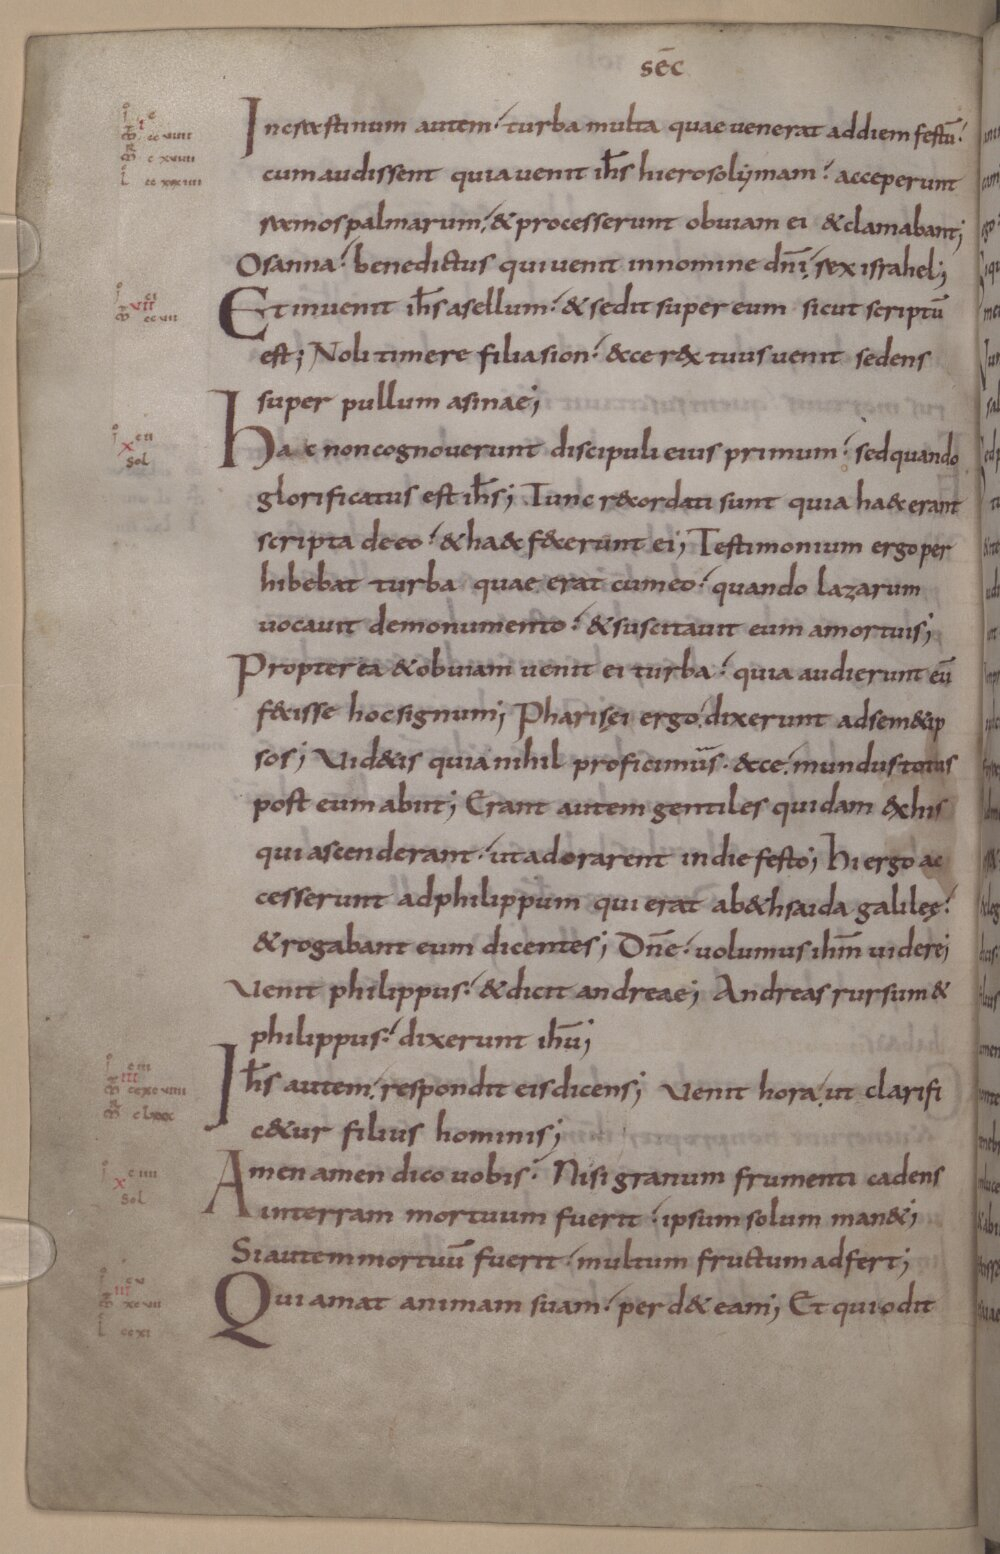 sēc
Incrastinum autem turba multa quae uenerat addiem festū
cumaudissent quia uenit ih̄s hierosolymam acceperunt
ramospalmarum & processerunt obuiam ei & clamabant;
Osanna benedictus qui uenit innomine dn̄i, rex israhel;
Et inuenit ih̄s asellum & sedit super eum sicut scriptū
est; Noli timere filia sion &cce r&x tuus uenit sedens
super pullum asinae;
Haec noncognouerunt discipuli eius primum sed quando
glorificatus est ih̄s; Tunc r&cordati sunt quia ha&c erant
scripta de eo & ha&c f&cerunt ei; Testimonium ergo per
hibebat turba quae erat cum eo quando lazarum
uocauit demonumento & suscitauit eum amortuis;
Propterea & obuiam uenit ei turba quia audierunt eū
f&cisse hoc signum; Pharisęi ergo dixerunt adsem&ip
sos; Uid&is quia nihil proficimus &cce mundus totus
post eum abiit; Erant autem gentiles quidam &x his
qui ascenderant ut adorarent in die festo; Hi ergo ac
cesserunt adphilippum qui erat ab&hsaida galileę
& rogabant eum dicentes; Dn̄e uolumus ih̄m uidere;
Uenit philippus & dicit andreae; Andreas rursum &
philippus dixerunt ih̄u;
Ih̄s autem respondit eis dicens; Uenit hora ut clarifi
c&ur filius hominis;
Amen amen dico uobis Nisi granum frumenti cadens
interram mortuum fuerit ipsum solum man&;
Si autem mortuū fuerit multum fructum adfert;
Qui amat animam suam perd& eam; Et qui odit